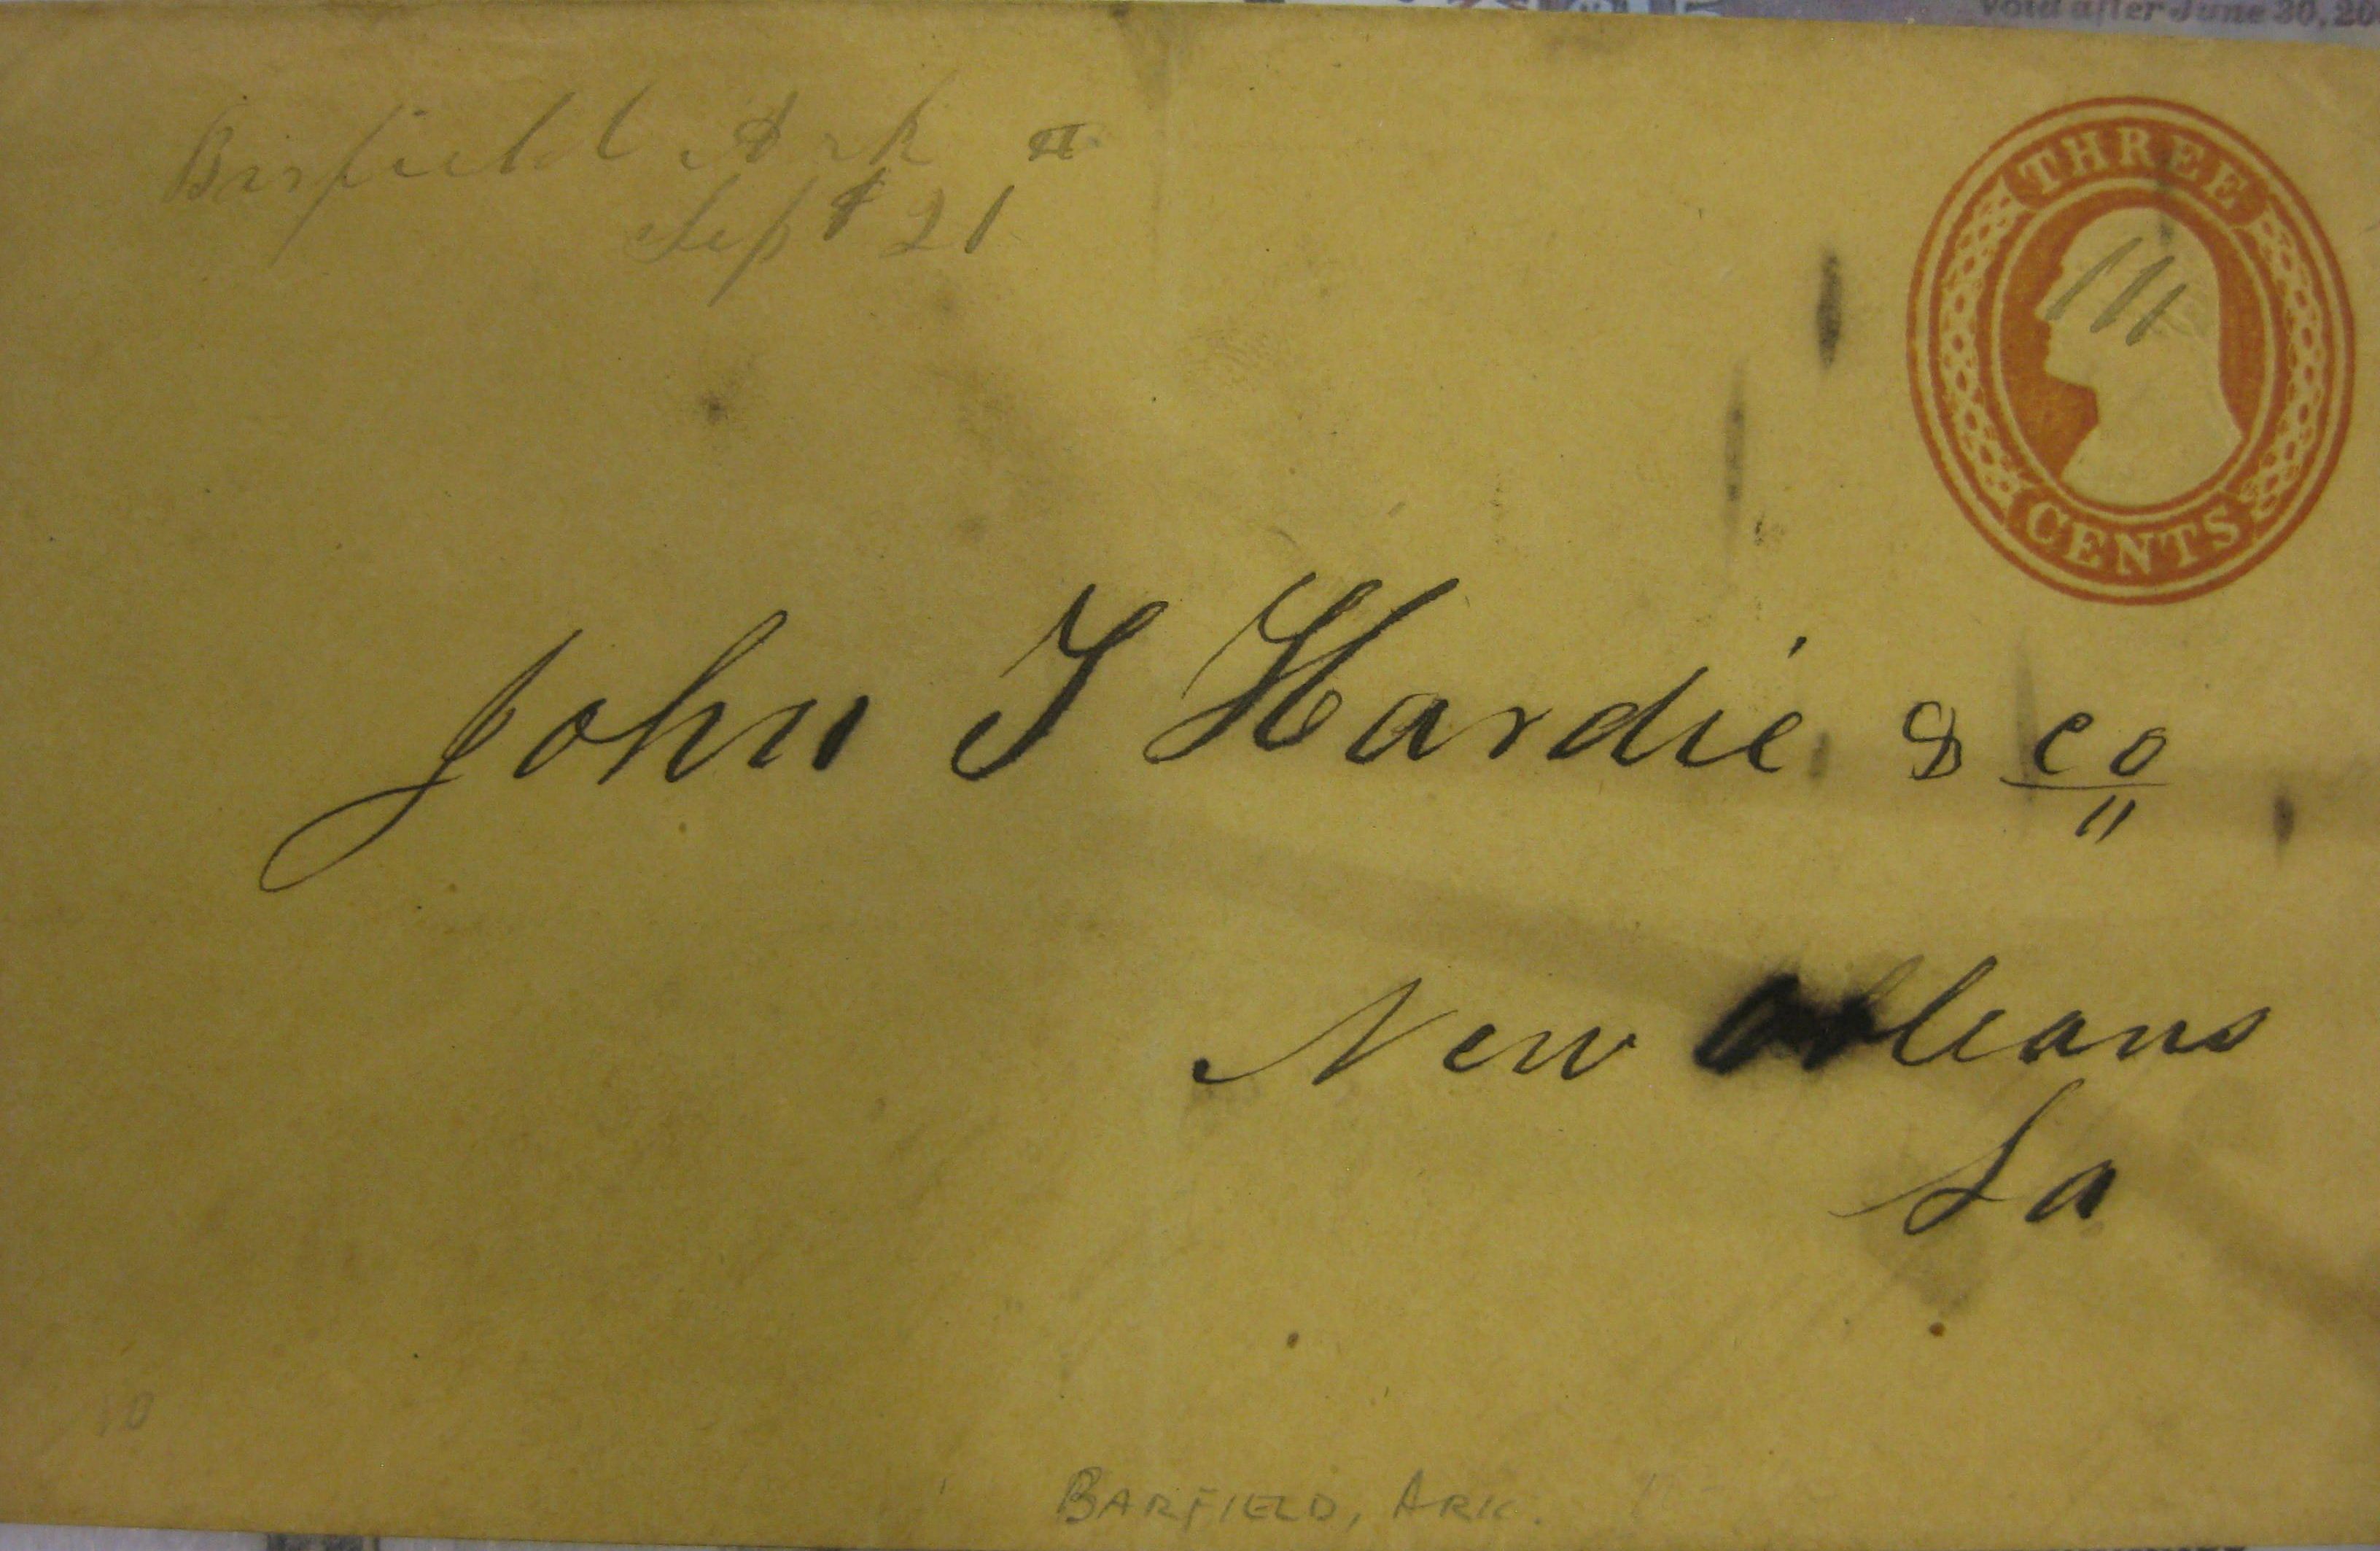 void after June 30, 20
Barfield Ark
Sept 21
THREE
CENTS
John T Hardie & co
New Orleans
La
10
BARFIELD, ARK.